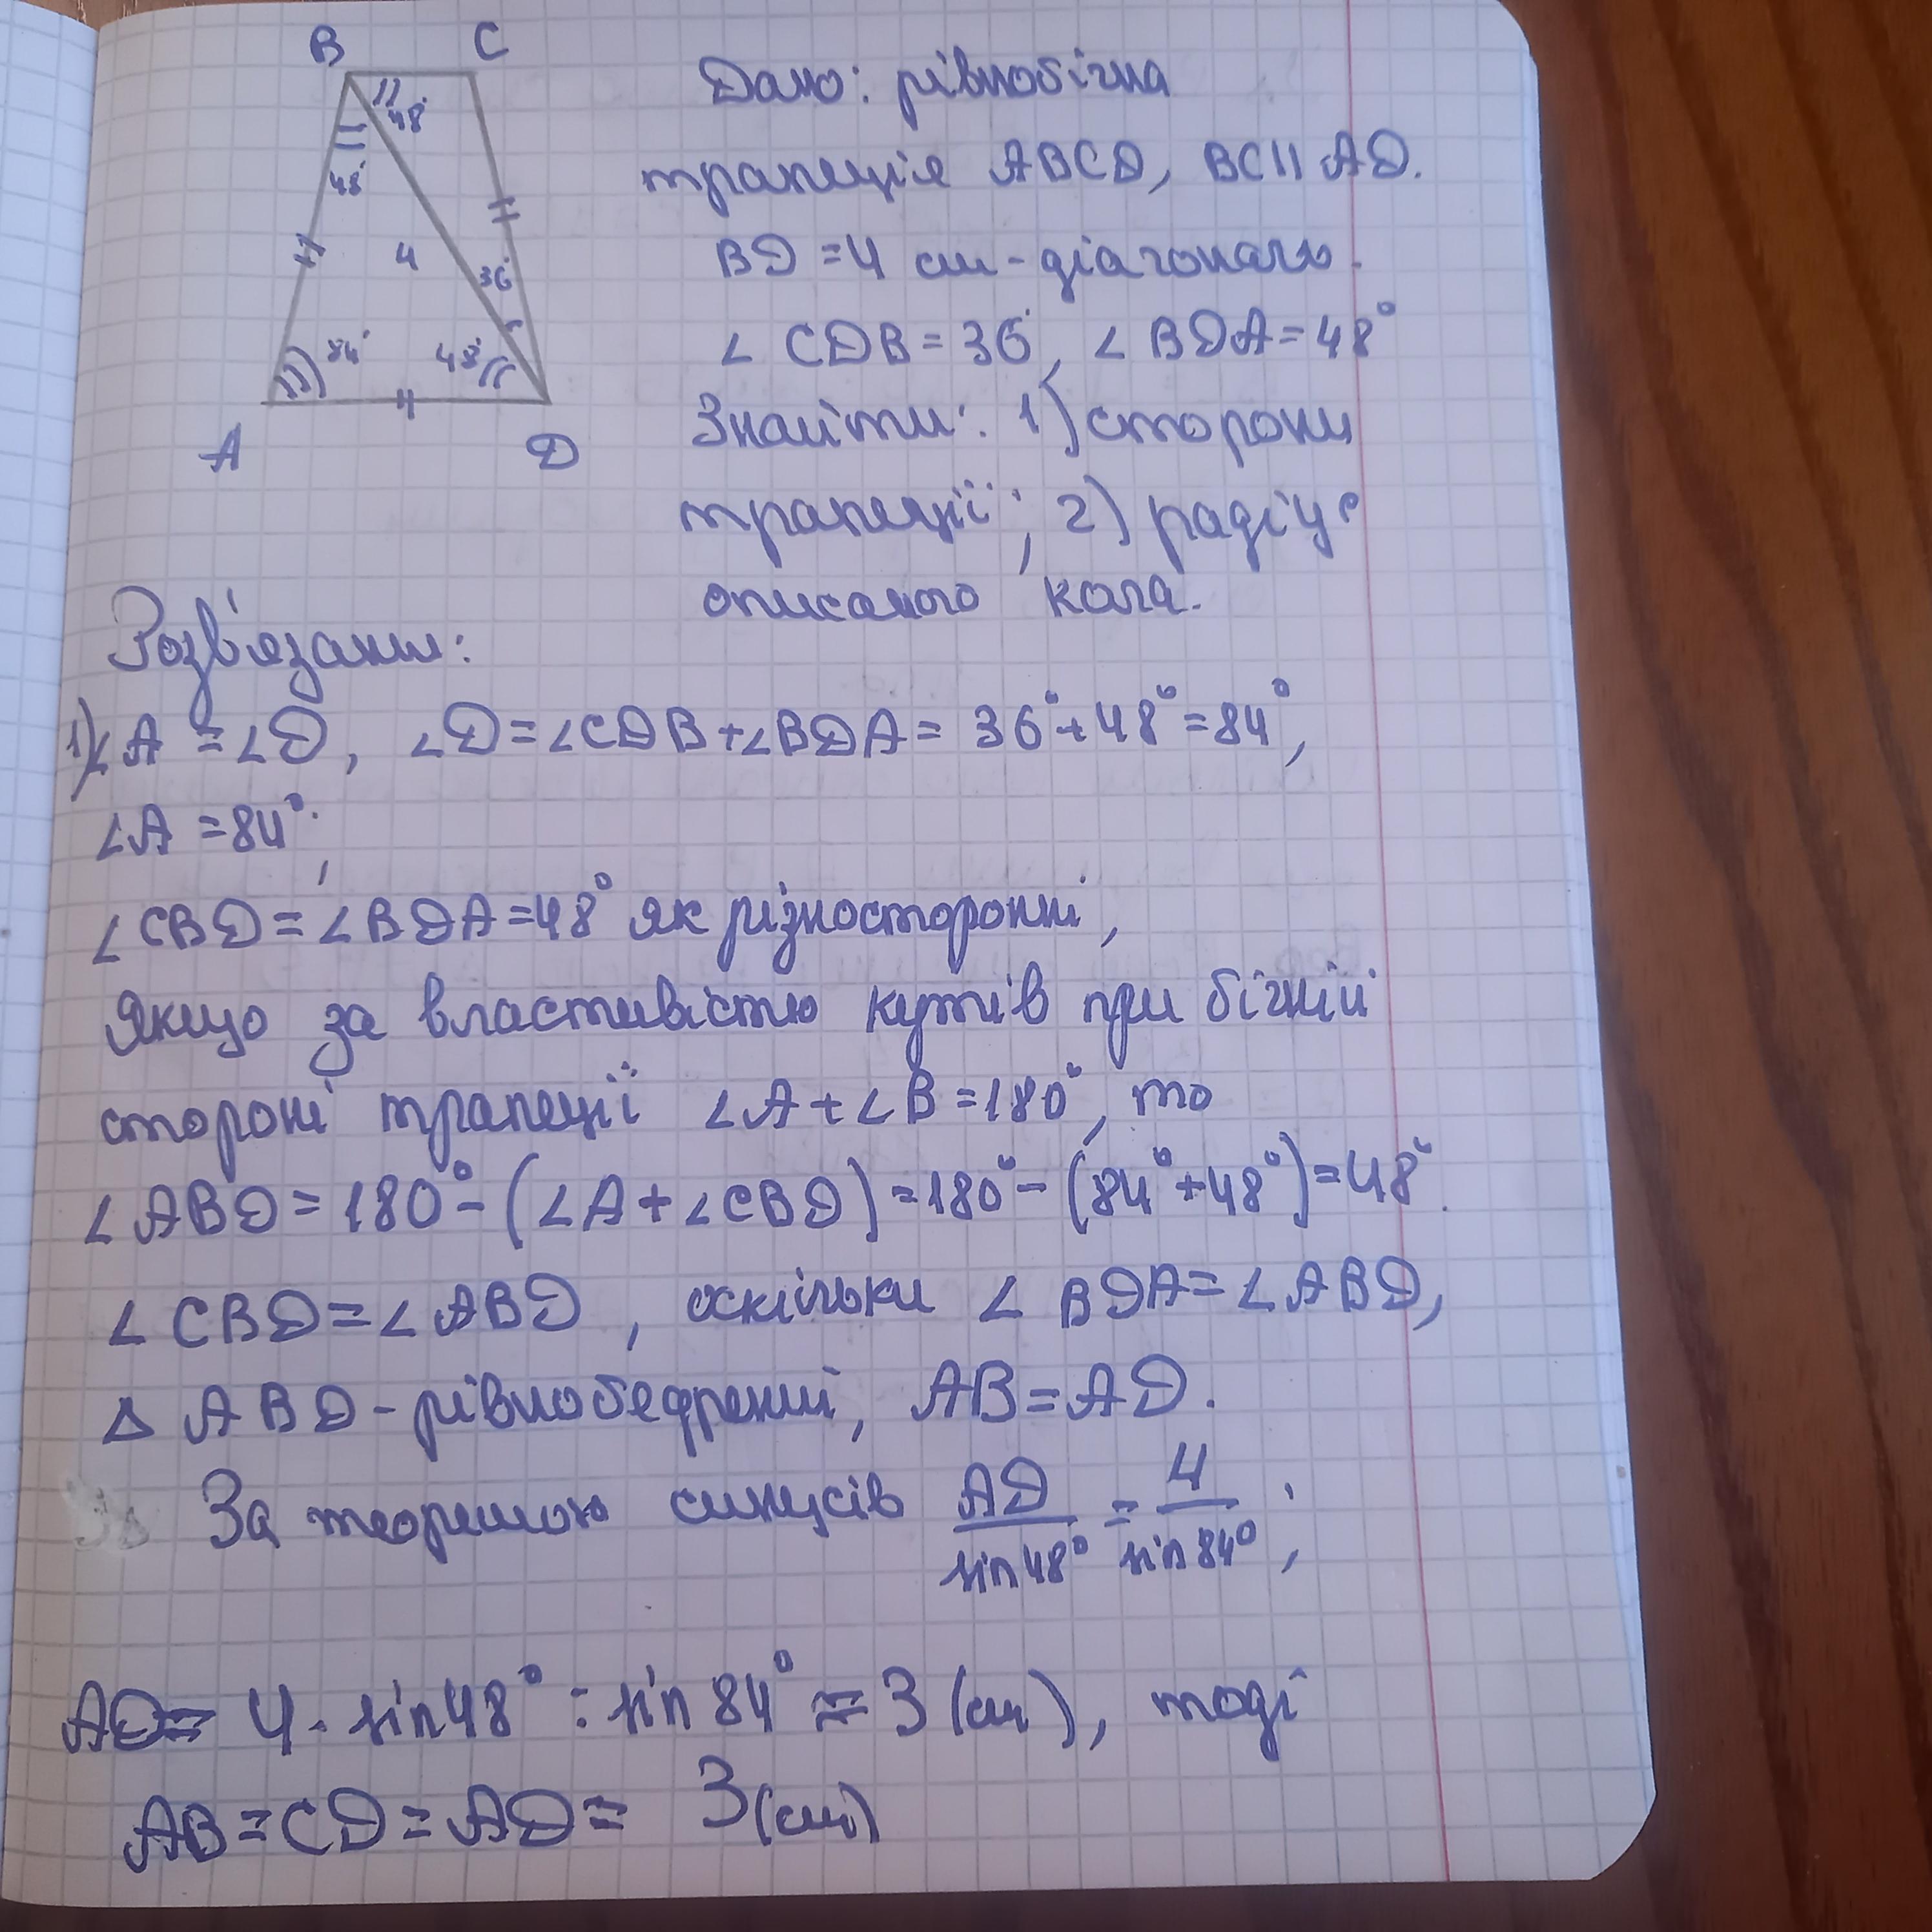 B C
48°
48°
4
36°
84° 48°
A D
Дано: рівнобічна
трапеція ABCD, BC || AD.
BD = 4 см - діагональ.
∠ CDB = 36°, ∠ BDA = 48°
Знайти: 1) сторони
трапеції; 2) радіус
описаного кола.
Розв'язання:
1) ∠A = ∠D, ∠D = ∠CDB + ∠BDA = 36° + 48° = 84°,
∠A = 84°;
∠CBD = ∠BDA = 48° як різносторонні,
Якщо за властивістю кутів при бічній
стороні трапеції ∠A + ∠B = 180°, то
∠ABD = 180° - (∠A + ∠CBD) = 180° - (84° + 48°) = 48°.
∠CBD = ∠ABD, оскільки ∠BDA = ∠ABD,
Δ ABD - рівнобедрений, AB = AD.
За теоремою синусів AD/sin 48° = 4/sin 84°;
AD = 4 · sin 48° : sin 84° ≈ 3 (см), тоді
AB = CD = AD = 3 (см)